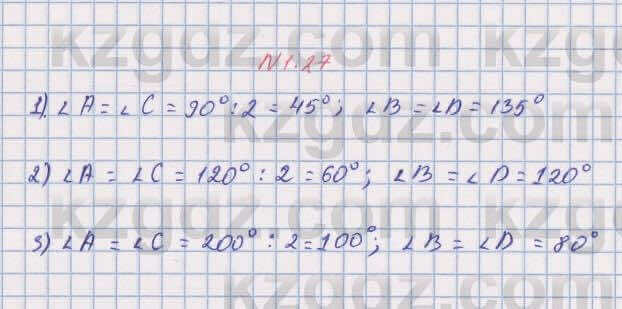 N 1.27
1). ∠A = ∠C = 90° : 2 = 45°; ∠B = ∠D = 135°
2) ∠A = ∠C = 120° : 2 = 60°; ∠B = ∠D = 120°
3) ∠A = ∠C = 200° : 2 = 100°; ∠B = ∠D = 80°
kzgdz.com
kzgdz.com
kzgdz.com
kzgdz.com
kzgdz.com
kzgdz.com